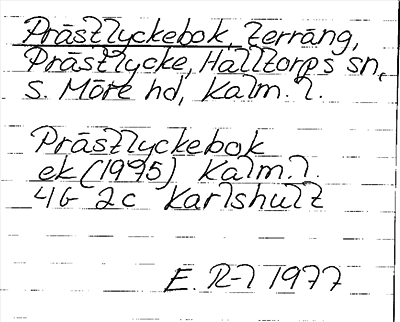 Prästlyckebok, terräng,
Prästlycke, Halltorps sn,
S. Möre hd, Kalm. l.
Prästlyckebok
ek (1975) Kalm. l.
4G 2c Karlshult
E. R-l 1977